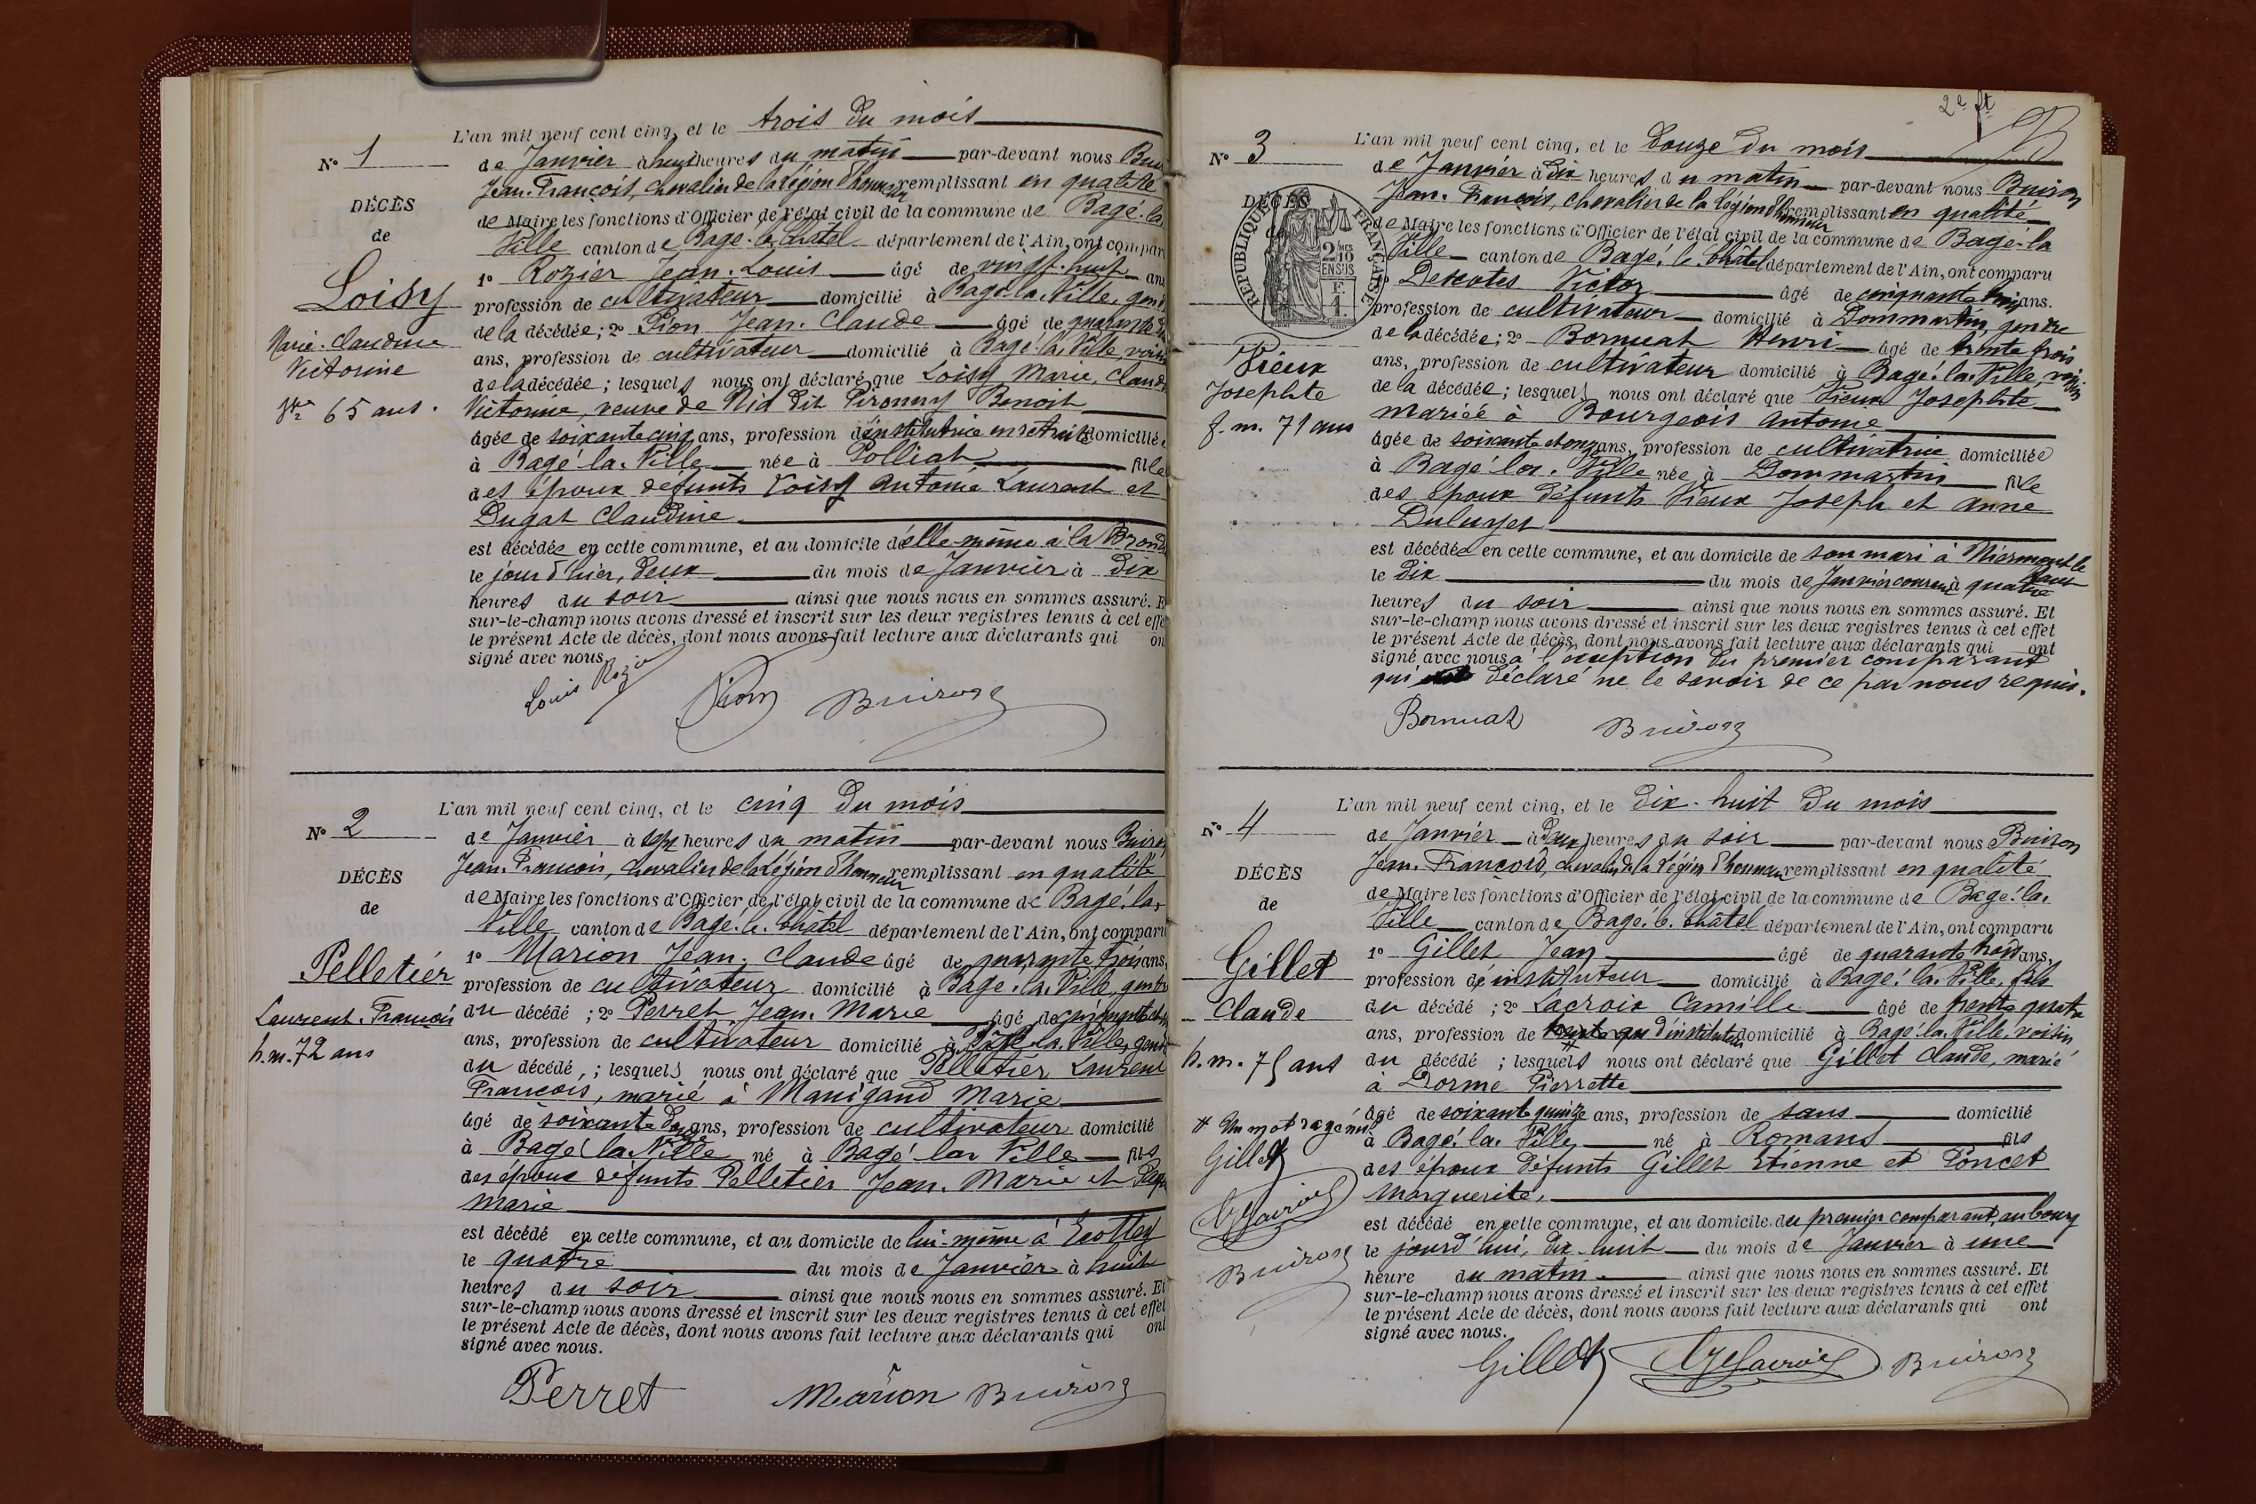 L'an mil neuf cent cinq, et le trois du mois
N° 1
de Janvier à huit heures du matin par-devant nous
Jean-François, chevalier de la Légion d'honneur remplissant en qualité
DÉCÈS
de Maire les fonctions d'Officier de l'état civil de la commune de Bagé-la
de
Ville canton de Bagé-le-Châtel département de l'Ain, ont compar
Loisy
1° Rozier Jean-Louis âgé de vingt-huit ans
profession de cultivateur domicilié à Bagé-la-Ville, gend
Marie-Claudine
de la décédée; 2° Pion Jean-Claude âgé de quarante
Victorine
ans, profession de cultivateur domicilié à Bagé-la-Ville voisin
de la décédée; lesquels nous ont déclaré que Loisy Marie, Claud
Vve 65 ans.
Victorine, veuve de Nid dit Pironny Benoit
âgée de soixante cinq ans, profession d'institutrice en retraite domiciliée
à Bagé-la-Ville née à Polliat fille
des époux défunts Loisy Antonie Laurent et
Dugat Claudine.
est décédée en cette commune, et au domicile d'elle-même à la
le jour d'hier, deux du mois de Janvier à dix
heures du soir ainsi que nous nous en sommes assuré. E
sur-le-champ nous avons dressé et inscrit sur les deux registres tenus à cet effe
le présent Acte de décès, dont nous avons fait lecture aux déclarants qui on
signé avec nous.
Louis Rozier Pion Buiron
L'an mil neuf cent cinq, et le cinq du mois
N° 2
de Janvier à sept heures du matin par-devant nous Buiron
Jean-François, chevalier de la Légion d'honneur remplissant en qualité
DÉCÈS
de Maire les fonctions d'Officier de l'état civil de la commune de Bagé-la-
de
Ville canton de Bagé-le-Châtel département de l'Ain, ont comparu
Pelletier
1° Marion Jean-Claude âgé de quarante trois ans,
profession de cultivateur domicilié à Bagé-la-Ville, gendre
Laurent-François
du décédé; 2° Perret Jean-Marie âgé de
h.m. 72 ans
ans, profession de cultivateur domicilié à Bagé-la-Ville, gend
du décédé,; lesquels nous ont déclaré que Pelletier Laurent
François, marié à Manigand Marie
âgé de soixante douze ans, profession de cultivateur domicilié
à Bagé la Ville né à Bagé-la-Ville fils
des époux défunts Pelletier Jean-Marie et
Marie
est décédé en cette commune, et au domicile de lui-même à
le quatre du mois de Janvier à huit
heures du soir ainsi que nous nous en sommes assuré. Et
sur-le-champ nous avons dressé et inscrit sur les deux registres tenus à cet effet
le présent Acte de décès, dont nous avons fait lecture aux déclarants qui ont
signé avec nous.
Perret Marion Buiron
2e ft
L'an mil neuf cent cinq, et le Douze du mois
N° 3
de Janvier à Dix heures du matin par-devant nous Buiron
Jean-François, chevalier de la Légion d'honneur remplissant en qualité
DÉCÈS
de Maire les fonctions d'Officier de l'état civil de la commune de Bagé-la
RÉPUBLIQUE FRANÇAISE
2/10 EN SUS
F. 1.
Ville canton de Bagé-le-Châtel département de l'Ain, ont comparu
Descotes Victor âgé de cinquante trois ans.
profession de cultivateur domicilié à Dommartin, gendre
Vieux
de la décédée; 2° Bornuat Henri âgé de trente trois
Josephte
ans, profession de cultivateur domicilié à Bagé-la-Ville, voisin
f. m. 71 ans
de la décédée; lesquels nous ont déclaré que Vieux Josephte
mariée à Bourgeois Antonie
âgée de soixante et onze ans, profession de cultivatrice domiciliée
à Bagé-la-Ville née à Dommartin fille
des époux défunts Vieux Joseph et Anne
est décédée en cette commune, et au domicile de son mari à
le dix du mois de Janvier courant à quatre
heures du soir ainsi que nous nous en sommes assuré. Et
sur-le-champ nous avons dressé et inscrit sur les deux registres tenus à cet effet
le présent Acte de décès, dont nous avons fait lecture aux déclarants qui ont
signé avec nous à l'exception du premier comparant
qui déclaré ne le savoir de ce par nous requis.
Bornuat Buiron
L'an mil neuf cent cinq, et le dix-huit du mois
N° 4
de Janvier à deux heures du soir par-devant nous Buiron
Jean-François, chevalier de la Légion d'honneur remplissant en qualité
DÉCÈS
de Maire les fonctions d'Officier de l'état civil de la commune de Bagé-la-
de
Ville canton de Bagé-le-Châtel département de l'Ain, ont comparu
Gillet
1° Gillet Jean âgé de quarante trois ans,
profession d'instituteur domicilié à Bagé-la-Ville, fils
Claude
du décédé; 2° Lacroix Camille âgé de trente quatre
ans, profession de d'instituteur domicilié à Bagé-la-Ville, voisin
h. m. 75 ans
du décédé; lesquels nous ont déclaré que Gillet Claude, marié
à Dorme Pierrette
âgé de soixante quinze ans, profession de sans domicilié
Un mot rayé nul
à Bagé-la-Ville né à Romans fils
Gillet
des époux défunts Gillet Etienne et Poncet
Marguerite.
Lacroix
est décédé en cette commune, et au domicile du premier comparant, au bourg
le jourd'hui, dix-huit du mois de Janvier à une
Buiron
heure du matin. ainsi que nous nous en sommes assuré. Et
sur-le-champ nous avons dressé et inscrit sur les deux registres tenus à cet effet
le présent Acte de décès, dont nous avons fait lecture aux déclarants qui ont
signé avec nous.
Gillet Lacroix Buiron